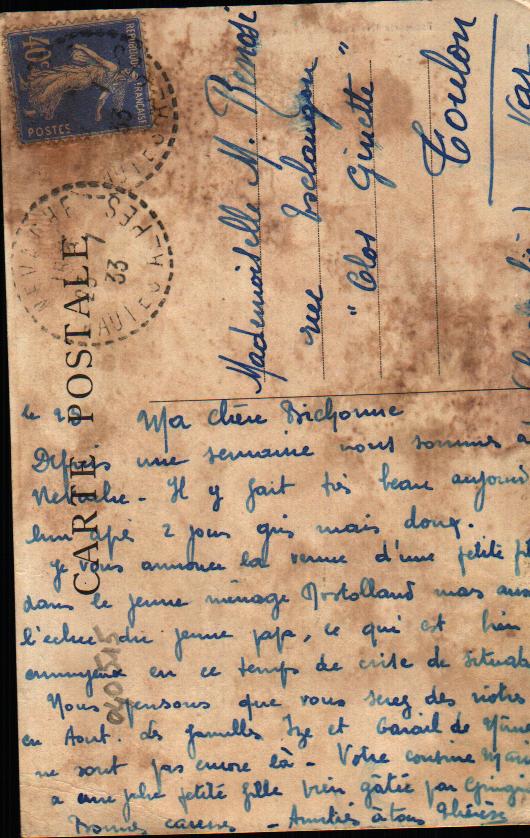 CARTE POSTALE
REPUBLIQUE FRANÇAISE
40c
POSTES
NEVACHE
33
HTES ALPES
Mademoiselle M. Renosi
rue Esclangon
"Clos Ginette"
Toulon
Var
le 28
Ma chère Bichonne
Depuis une semaine nous sommes à
Nevache - Il y fait très beau aujourd
hui après 2 jours gris mais doux.
Je vous annonce la venue d'une petite fil
dans le jeune ménage Rostolland mais aus
l'échec du jeune papa, ce qui est bien
ennuyeux en ce temps de crise de situati
Nous pensons que vous serez des nôtres
en Aout. Les familles et de
ne sont pas encore là - Votre cousine
a une jolie petite fille bien gâtée par
Bonnes caresses - Amitiés à tous Thérèse
040515